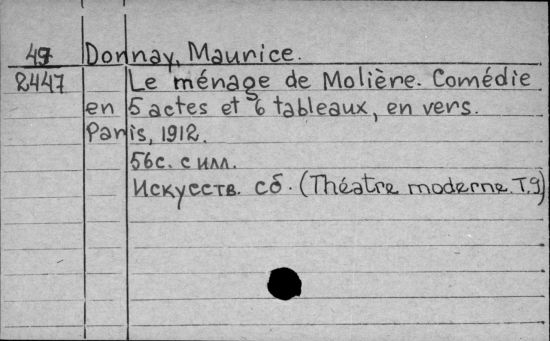 49 Donnay, Maurice.
2447 Le ménage de Molière. Comédie
en 5 actes et 6 tableaux, en vers.
Paris, 1912.
56с. с илл.
Искусств. сб. (Théatre moderne. T.9)